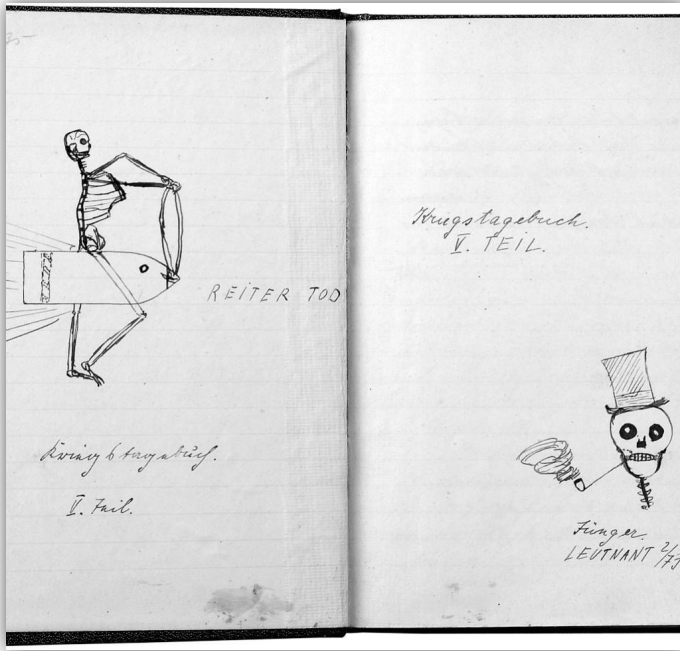 REITER TOD
Kriegstagebuch.
V. Teil.
Kriegstagebuch.
V. TEIL.
Jünger.
LEUTNANT 2/73